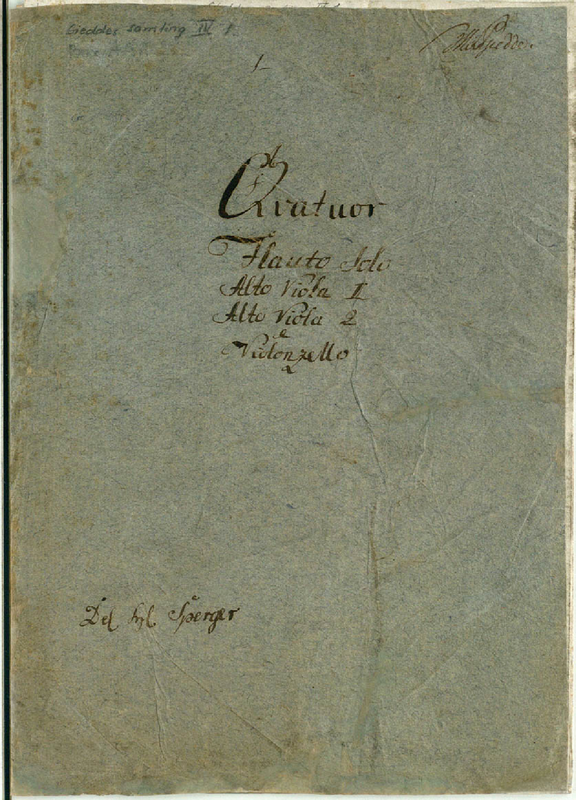 Gieddes samling IV, 1.
1
Qvatuor
a
Flauto Solo
Alto Viola 1
Alto Viola 2
e
Violonzello
Del Sigl Sperger